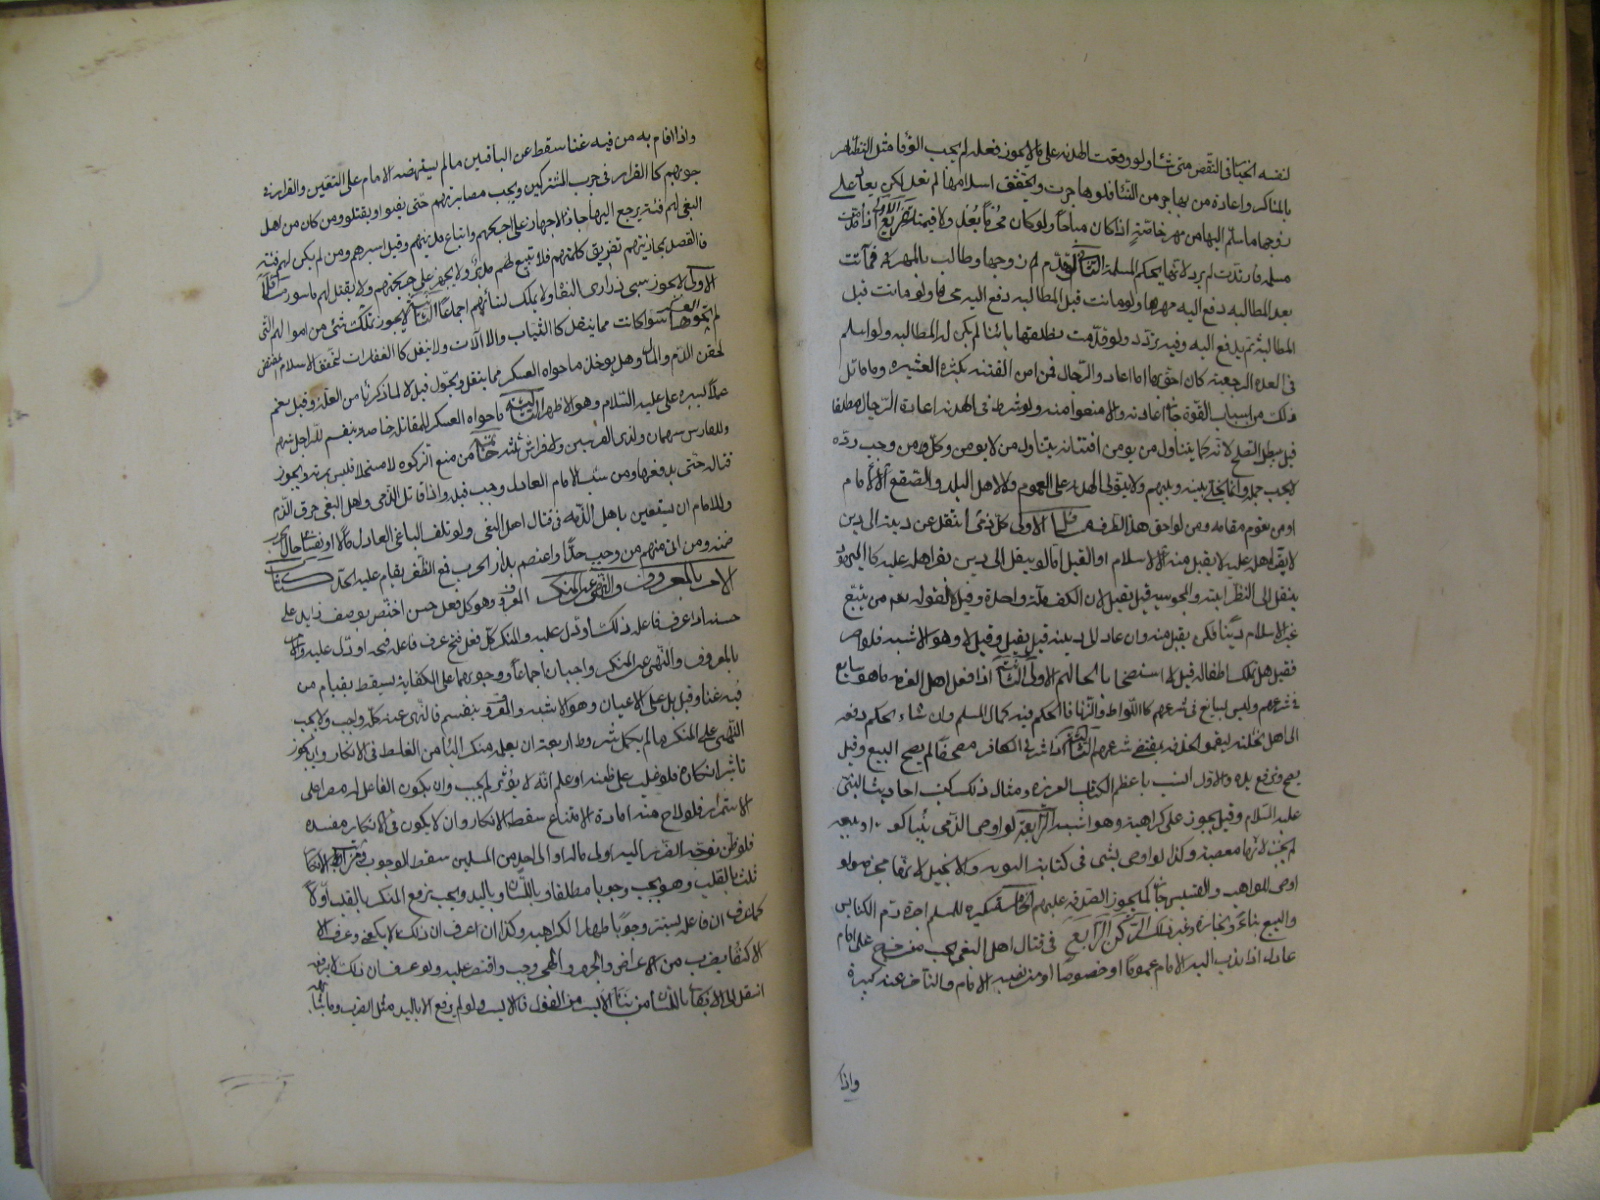 لنفسه الخيار فى النقص متى شاء ولو وقعت الهدنه على ما لا يجوز فعله لم يجب الوفا مثل التظاهر
بالمناكر واعادة من يهاجر من النسا فلو هاجرت وتحقق اسلامها لم تعد لكن يعاد على
زوجها ما سلم اليها من مهر خاصة اذا كان مباحا ولو كان محرما لم يعد ولا قيمته تفريعان الاول اذا قدمت
مسلمه فارتدت لم ترد لانها بحكم المسلمة الثانى لو قدم زوجها وطالب بالمهر فماتت
بعد المطالبه دفع اليه مهرها ولو ماتت قبل المطالبه لم يدفع اليه
المطالبة لم يدفع اليه وفيه تردد ولو قدمت فطلقها بائنا لم يكن له المطالبه ولو اسلم
فى العده الرجعية كان احق بها اما اعاده الرجال فمن امن الفتنه بكثرة العشيره وما ماثل
ذلك من اسباب القوة جاز اعادته والا منعوا منه ولو شرط فى الهدنه اعادة الرجال مطلقا
قيل يبطل الصلح لانه كما يتناول من يومن افتتانه يتناول من لا يومن وكل من وجب رده
لا يجب حمله وانما يخلى بينه وبينهم ولا يتولى الهدنه على العموم ولا لاهل البلد والصقع الا الامام
او من يقوم مقامه ومن لواحق هذا الطرف مسائل الاولى كل ذمى انتقل عن دينه الى دين
لا يقر اهله عليه لا يقبل منه الا الاسلام او القتل اما لو ينتقل الى دين يقر اهله عليه كاليهودى
ينتقل الى النصرانيه والمجوسيه قيل يقبل لان الكفر ملة واحدة وقيل لا لقوله نعم من يبتغ
غير الاسلام دينا فلن يقبل منه وان عاد الى دينه قيل يقبل وقيل لا وهو الاشبه فلو اصر
فقتل هل يملك اطفاله قيل لا استصحابا لحالهم الاولى الثانية اذا فعل اهل الذمه ما هو سايغ
فى شرعهم وليس بسايغ فى شرعهم كاللواط والزنا فالحكم فيه كما فى المسلم وان شاء الحكم دفعه
الى اهل نحلته ليقيموا الحد فيه بمقتضى شرعهم الثالثة اذا اشترى الكافر مصحفا لم يصح البيع وقيل
يصح وترفع يده والاول انسب باعظم الكتاب العزيز ومثال ذلك كتب احاديث النبى
عليه السلام وقيل يجوز على كراهية وهو اشبه الرابعة لو اوصى الذمى ببناء كنيسه او بيعه
لم يجز لانها معصية وكذا لو اوصى بشى فى كتابة التوريه والانجيل لانها محرفه ولو
اوصى للراهب والقسيس جاز كما يجوز الصدقه عليهم الخامسة يكره للمسلم اجرة رم الكنايس
والبيع بناء ونجارة وغير ذلك الركن الرابع فى قتال اهل البغى يجب من خرج على امام
عادل اذا ندب اليه الامام عموما او خصوصا او من نصبه الامام والتأخر عنه كبيرة
واذا
واذا قام به من فيه غنا سقط عن الباقين مالم يستنهضه الامام على التعيين والفرار فى
حربهم كالفرار فى حرب المشركين ويجب مصابرتهم حتى يفيئوا او يقتلوا ومن كان من اهل
البغى لهم فئة يرجع اليها جاز الاجهاز على جريحهم واتباع مدبرهم وقتل اسيرهم ومن لم يكن لهم فئه
فالقصد بمحاربتهم تفريق كلمتهم فلا يتبع لهم مدبر ولا يجهز على جريحهم ولا يقتل لهم ماسور مسائل
الاولى لا يجوز سبى ذرارى البغاة ولا يملك نسائهم اجماعا الثانية لا يجوز تملك شئ من اموالهم التى
لم يحوها العسكر سوا كانت مما ينقل كالثياب والالات ولا ينقل كالعقارات لتحقق الاسلام المقتضى
لحقن الدم والمال وهل يوخذ ما حواه العسكر مما ينقل ويحول قيل لا لما ذكرنا من العله وقيل نعم
عملا بسيره على عليه السلام وهو الاظهر الثالثه ما حواه العسكر للمقاتله خاصه ويقسم للراجل سهم
وللفارس سهمان ولذى الفرسين والافراس ثلثه خاتمة من منع الزكوه لا مستحلا فليس بمرتد ويجوز
قتاله حتى يدفعها ومن سب الامام العادل وجب قتله واذا قاتل الذمى مع اهل البغى خرق الذمه
وللامام ان يستعين باهل الذمه فى قتال اهل البغى ولو تلف الباغى على العادل مالا او نفسا حال الحرب
ضمنه ومن اتى منهم من وجب حدا واعتصم بدار الحرب فمع الظفر يقام عليه الحد كتاب
الامر بالمعروف والنهى عن المنكر المعروف وهو كل فعل حسن اختص بوصف زايد على
حسنه اذا عرف فاعله ذلك او دل عليه والمنكر كل فعل قبح عرف فاعله قبحه او دل عليه والامر
بالمعروف والنهى عن المنكر واجبان اجماعا ووجوبهما على الكفاية يسقط بقيام من
فيه غنا وقيل بل على الاعيان وهو الاشبه والمعروف ينقسم فالنهى عنه كله واجب ولا يجب
النهى عن المنكر مالم يكمل شروط اربعة ان يعلمه منكرا ليأمن الغلط فى الانكار وان يجوز
تاثير انكاره فلو غلب على ظنه او علم انه لا يؤثر لم يجب وان يكون الفاعل له مصرا على
الاستمرار فلو لاح منه امارة الامتناع سقط الانكار وان لا يكون فى الانكار مفسده
فلو ظن توجه الضرر اليه او الى ماله او الى احد من المسلمين سقط الوجوب ومراتب الانكار
ثلث بالقلب وهو يجب وجوبا مطلقا وباللسان وباليد ويجب رفع المنكر بالقلب اولا
كما لو عرف ان فاعله ينزجر وجوبا باظهار الكراهيه وكذا ان اعرف ان ذلك لا يكفى وعرف الا
الاكتفا بضرب من الاعراض والهجر وجب واقتصر عليه ولو عرف ان ذلك لا يرفعه
انتقل الى الانكار باللسان مرتبا الايسر من القول فالايسر ولو لم يرفع الا باليد مثل الضرب وما شابهه